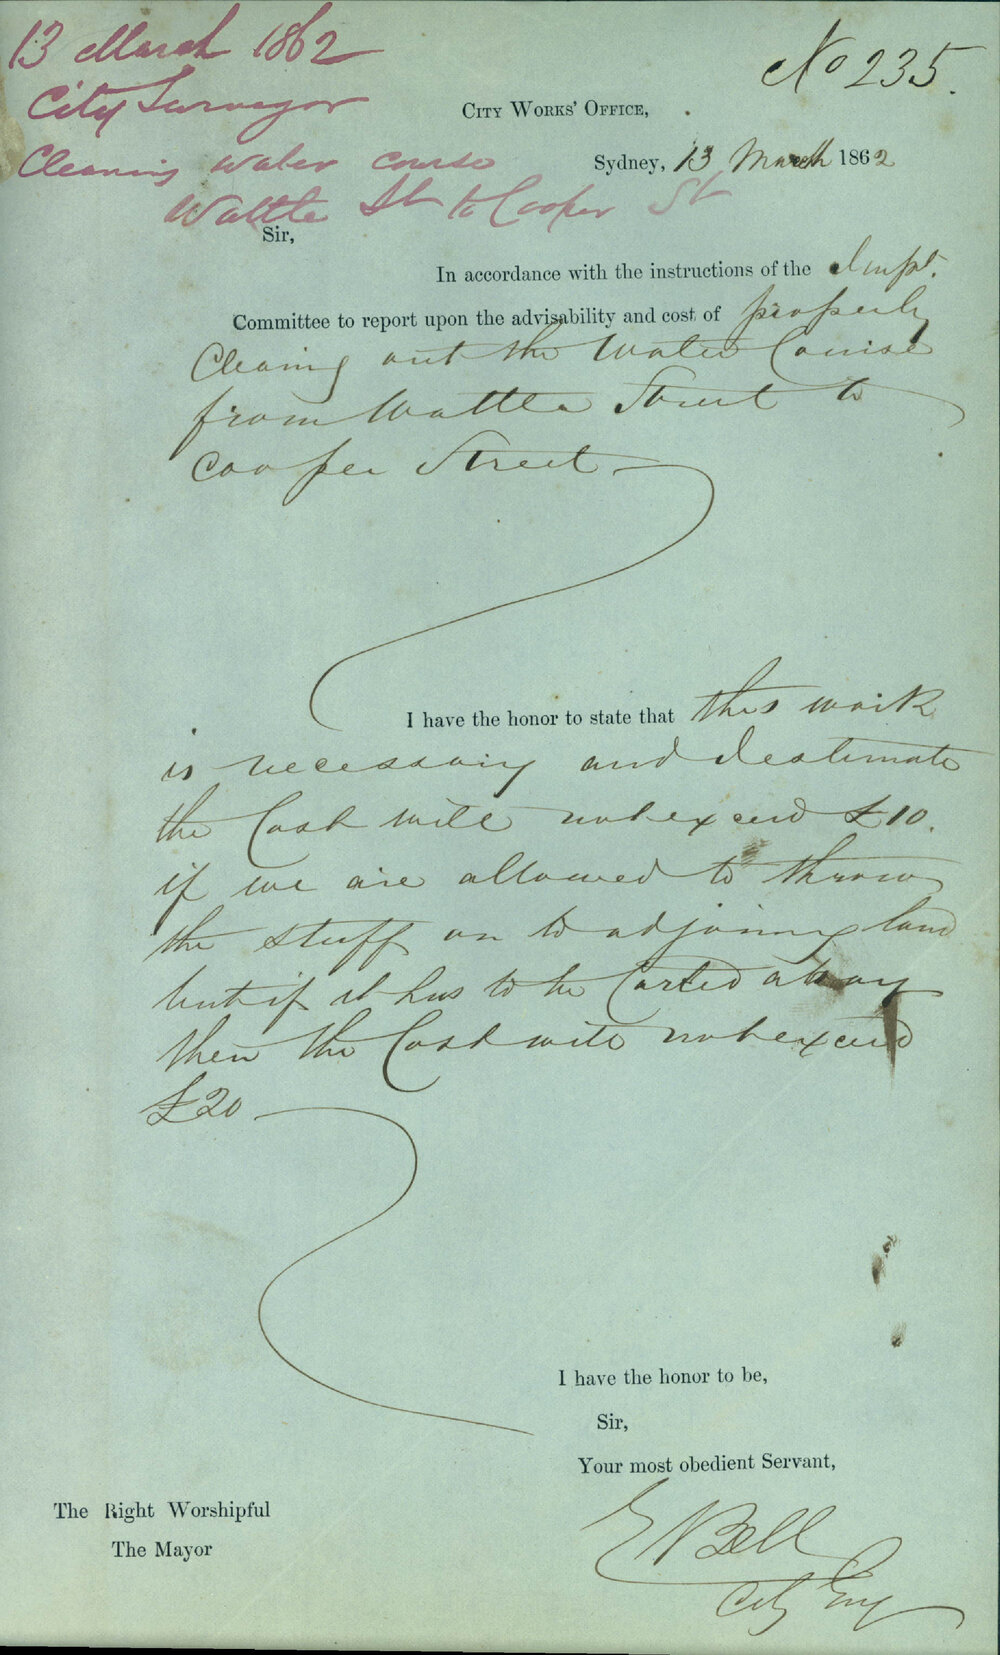 13 March 1862
City Surveyor
Cleaning water course
Wattle St to Cooper St
No 235.
City Works' Office,
Sydney, 13 March 1862
Sir,
In accordance with the instructions of the Impt.
Committee to report upon the advisability and cost of properly
Cleaning out the Water Course
from Wattle Street to
Cooper Street
I have the honor to state that this work
is necessary and I estimate
the Cost will not exceed £10.
if we are allowed to throw
the stuff on to adjoining land
but if it has to be Carted away
then the Cost will not exceed
£20
I have the honor to be,
Sir,
Your most obedient Servant,
E Bell
City Eng
The Right Worshipful
The Mayor